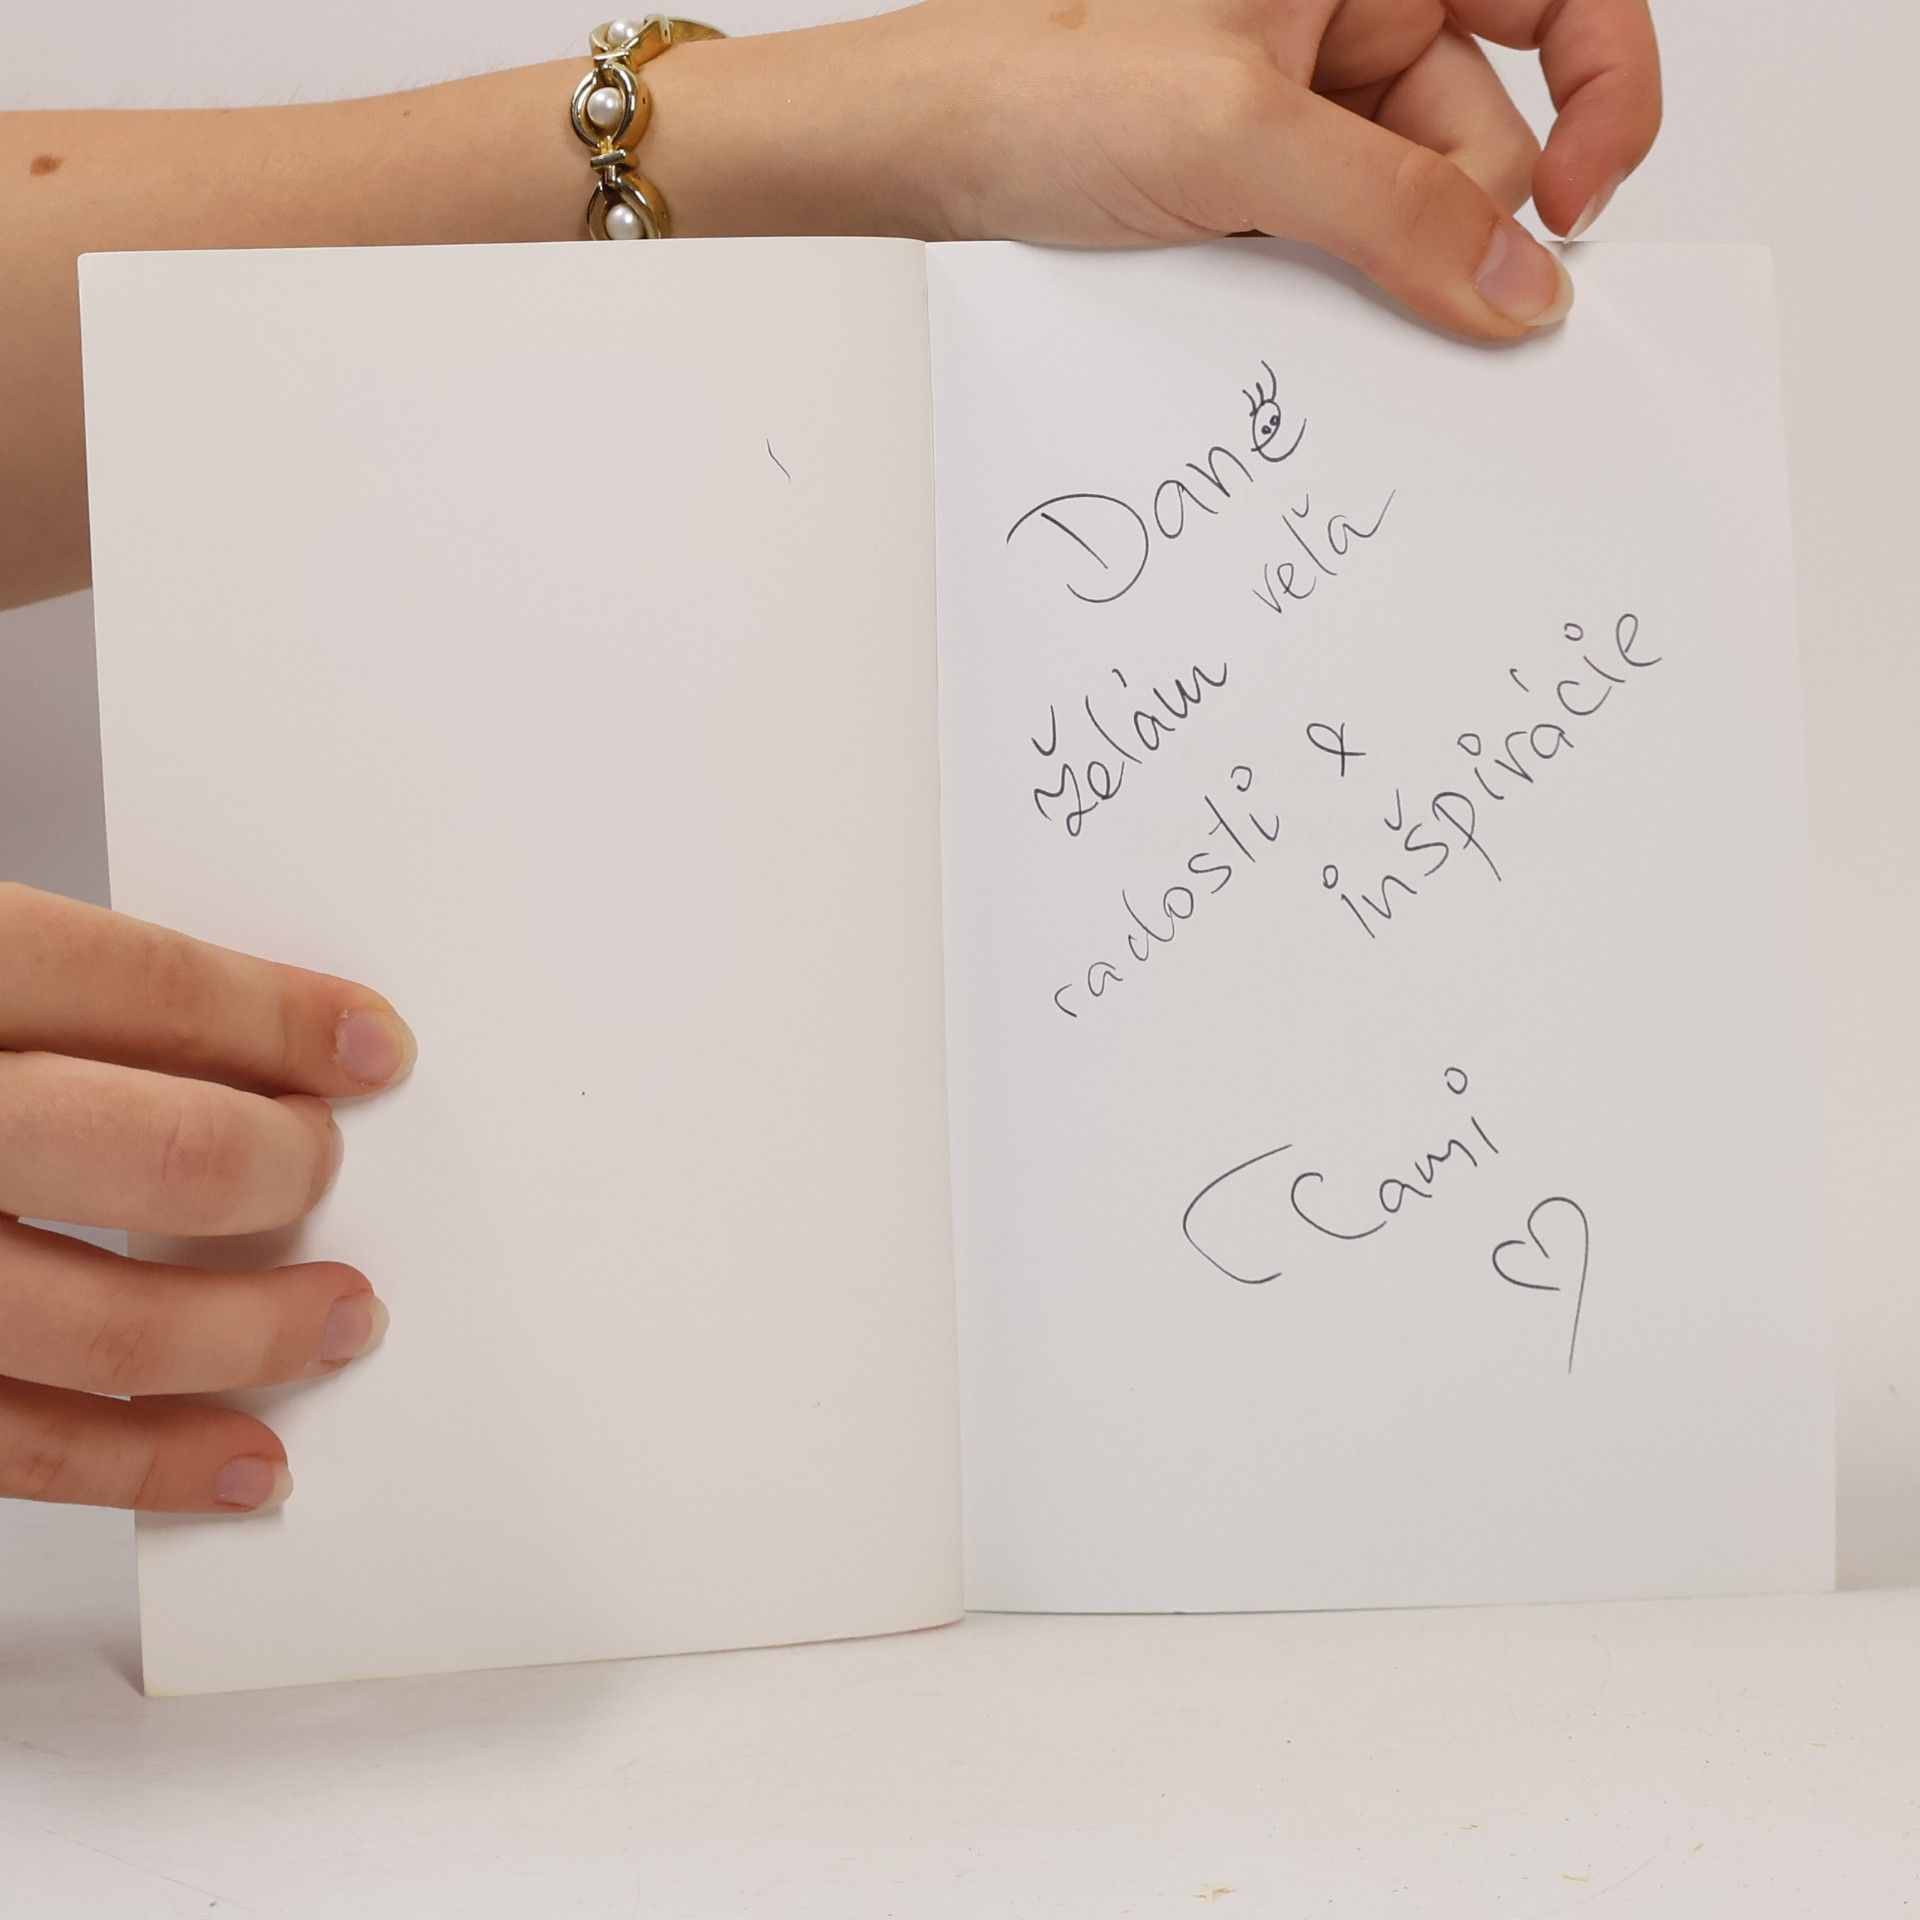 Dane
želám veľa
radosti &
inšpirácie
Cami